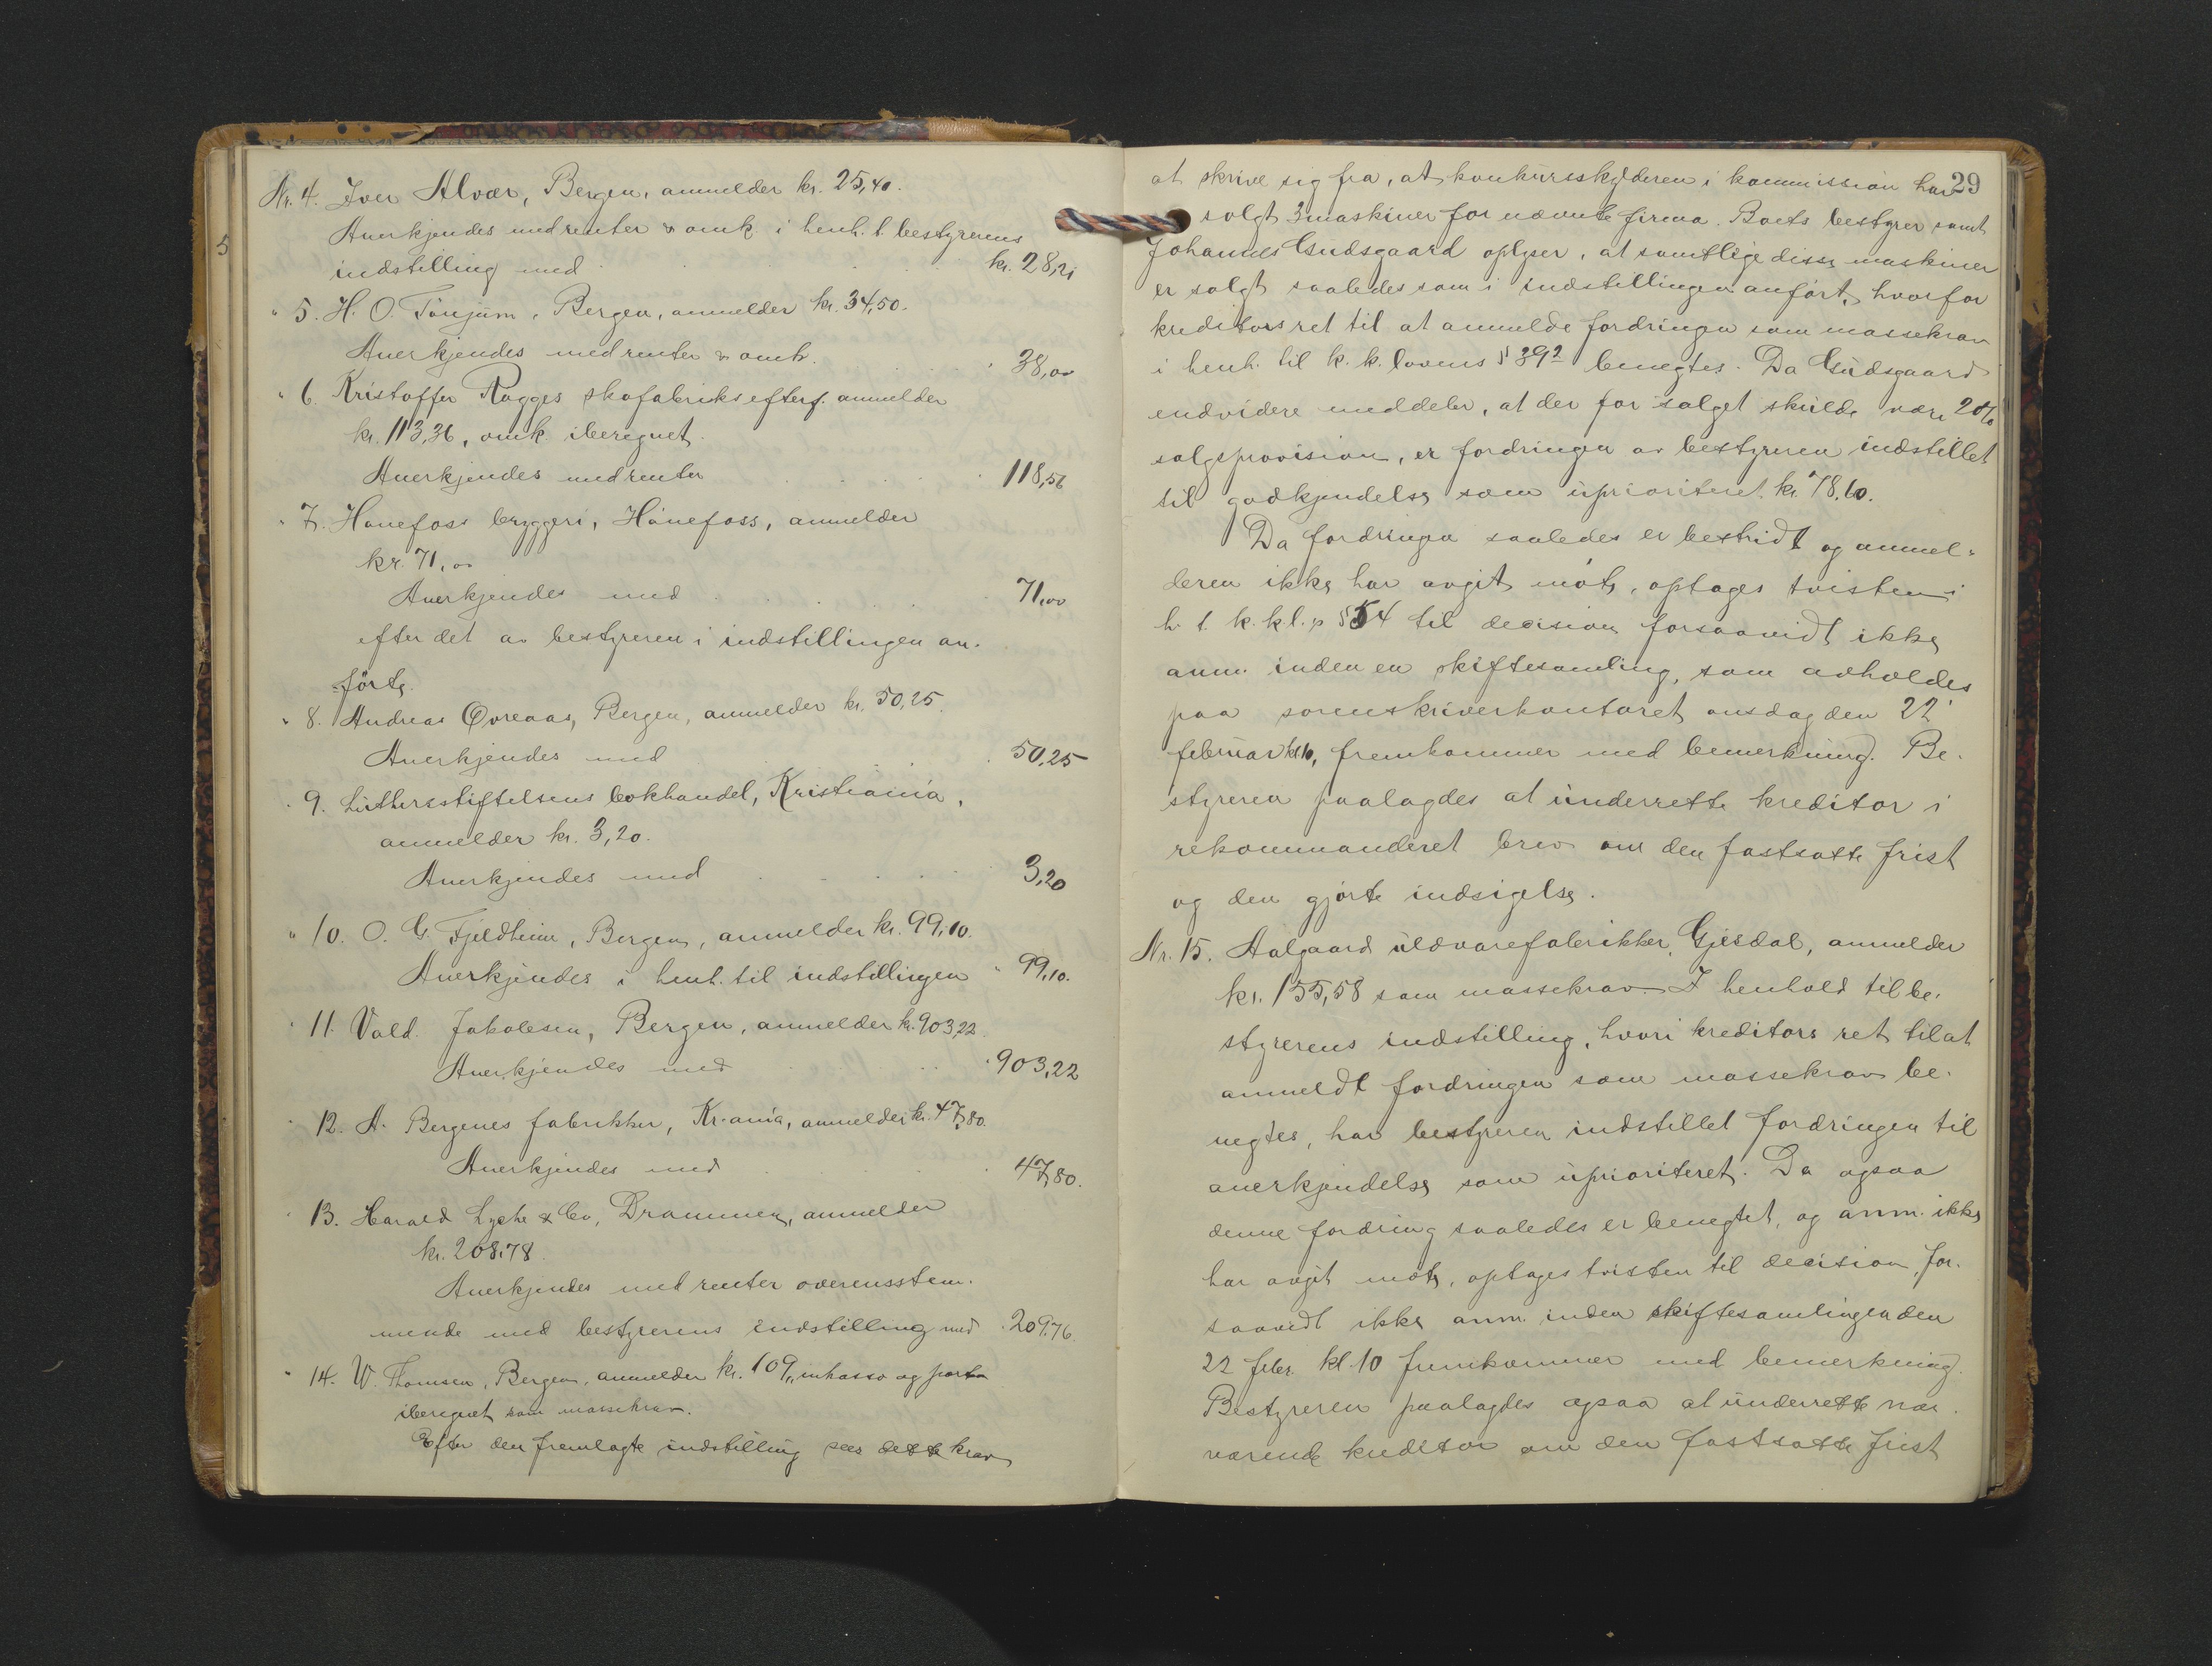 Nr. 4. Iver Alvær, Bergen, anmelder kr. 25,40.
Anerkjendes med renter & omk. i henh. t. bestyrerens
indstilling med kr. 28,21
" 5. H. O. Tönjum, Bergen, anmelder kr. 34,50.
Anerkjendes med renter & omk. " 38,00
" 6. Kristoffer Ragges skofabriks efterf. anmelder
kr. 113,36, omk. iberegnet.
Anerkjendes med renter 118,56
" 7. Hönefoss bryggeri, Hönefoss, anmelder
kr. 71,00
Anerkjendes med 71,00
efter det av bestyreren i indstillingen an-
förte.
" 8. Andreas Övreaas, Bergen, anmelder kr. 50,25.
Anerkjendes med 50,25
" 9. Luthersstiftelsens bokhandel, Kristiania,
anmelder kr. 3,20.
Anerkjendes med 3,20
" 10. O. G. Fjeldheim, Bergen, anmelder kr. 99,10.
Anerkjendes i henh. til indstillingen " 99,10.
" 11. Vald. Jakobsen, Bergen, anmelder kr. 903,22.
Anerkjendes med " 903,22
" 12. A. Bergenes fabrikker, Kr.ania, anmelder kr. 47,80.
Anerkjendes med 47,80.
" 13. Harald Lyche & Co, Drammen, anmelder
kr. 208,78.
Anerkjendes med renter overensstem-
mende med bestyrerens indstilling med " 209,76.
" 14. W. Thomsen, Bergen, anmelder kr. 109,, inkasso og porto
iberegnet som massekrav.
Efter den fremlagte indstilling sees dette krav
29
at skrive sig fra, at konkursskylderen i kommission har
solgt 3 maskiner for nævnte firma. Boets bestyrer samt
Johannes Gudsgaard oplyser, at samtlige disse maskiner
er solgt saaledes som i indstillingen anfört, hvorfor
kreditors ret til at anmelde fordringen som massekrav
i henh. til k. k. lovens § 39² benegtes. Da Gudsgaard
endvidere meddeler, at der for salget skulde være 20%
salgsprovision, er fordringen av bestyreren indstillet
til godkjendelse som uprioritert kr. 78,60.
Da fordringen saaledes er bestridt og anmel-
deren ikke har avgit möte, optages tvisten i
h. t. k. kl.s § 54 til decision forsaavidt ikke
anm. inden en skiftesamling, som avholdes
paa sorenskriverkontoret onsdag den 22'
februar kl 10, fremkommer med bemerkning. Be-
styreren paalagdes at underrette kreditor i
rekommanderet brev om den fastsatte frist
og den gjorte indsigelse.
Nr. 15. Aalgaard uldvarefabrikker, Gjesdal, anmelder
kr. 155,58 som massekrav. I henhold til be-
styrerens indstilling, hvori kreditors ret til at
anmeldt fordringen som massekrav be-
negtes, har bestyreren indstillet fordringen til
anerkjendelse som uprioriteret. Da ogsaa
denne fordring saaledes er benegtet, og anm. ikke
har avgit möte, optages tvisten til decision, for-
saavidt ikke anm. inden skiftesamlingen den
22 febr. kl 10 fremkommer med bemerkning.
Bestyreren paalagdes ogsaa at underrette nær-
værende kreditor om den fastsatte frist